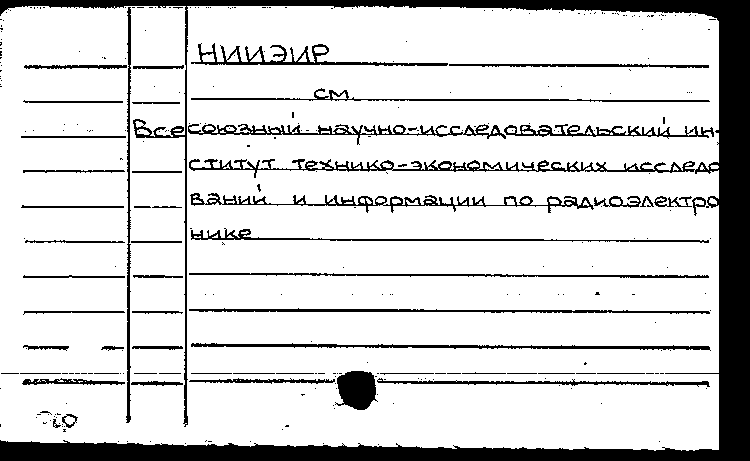 НИИЭИР
см.
Всесоюзный научно-исследовательский ин-
ститут технико-экономических исследо
ваний и информации по радиоэлектро
нике